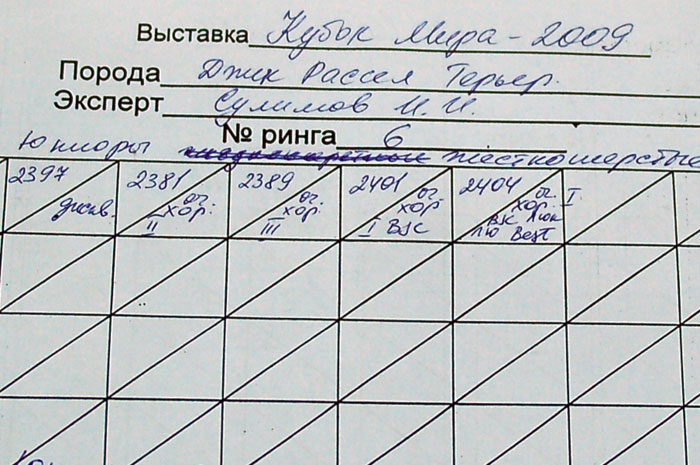 Выставка Кубок Мира - 2009
Порода Джек Рассел Терьер.
Эксперт Сулимов И.И.
№ ринга 6
Юниоры жесткошерстые
2397 2381 2389 2401 2404
дискв. оч. хор. оч. хор. оч. хор оч. хор. I.
II III I ВЈС ВЈС Лю Best